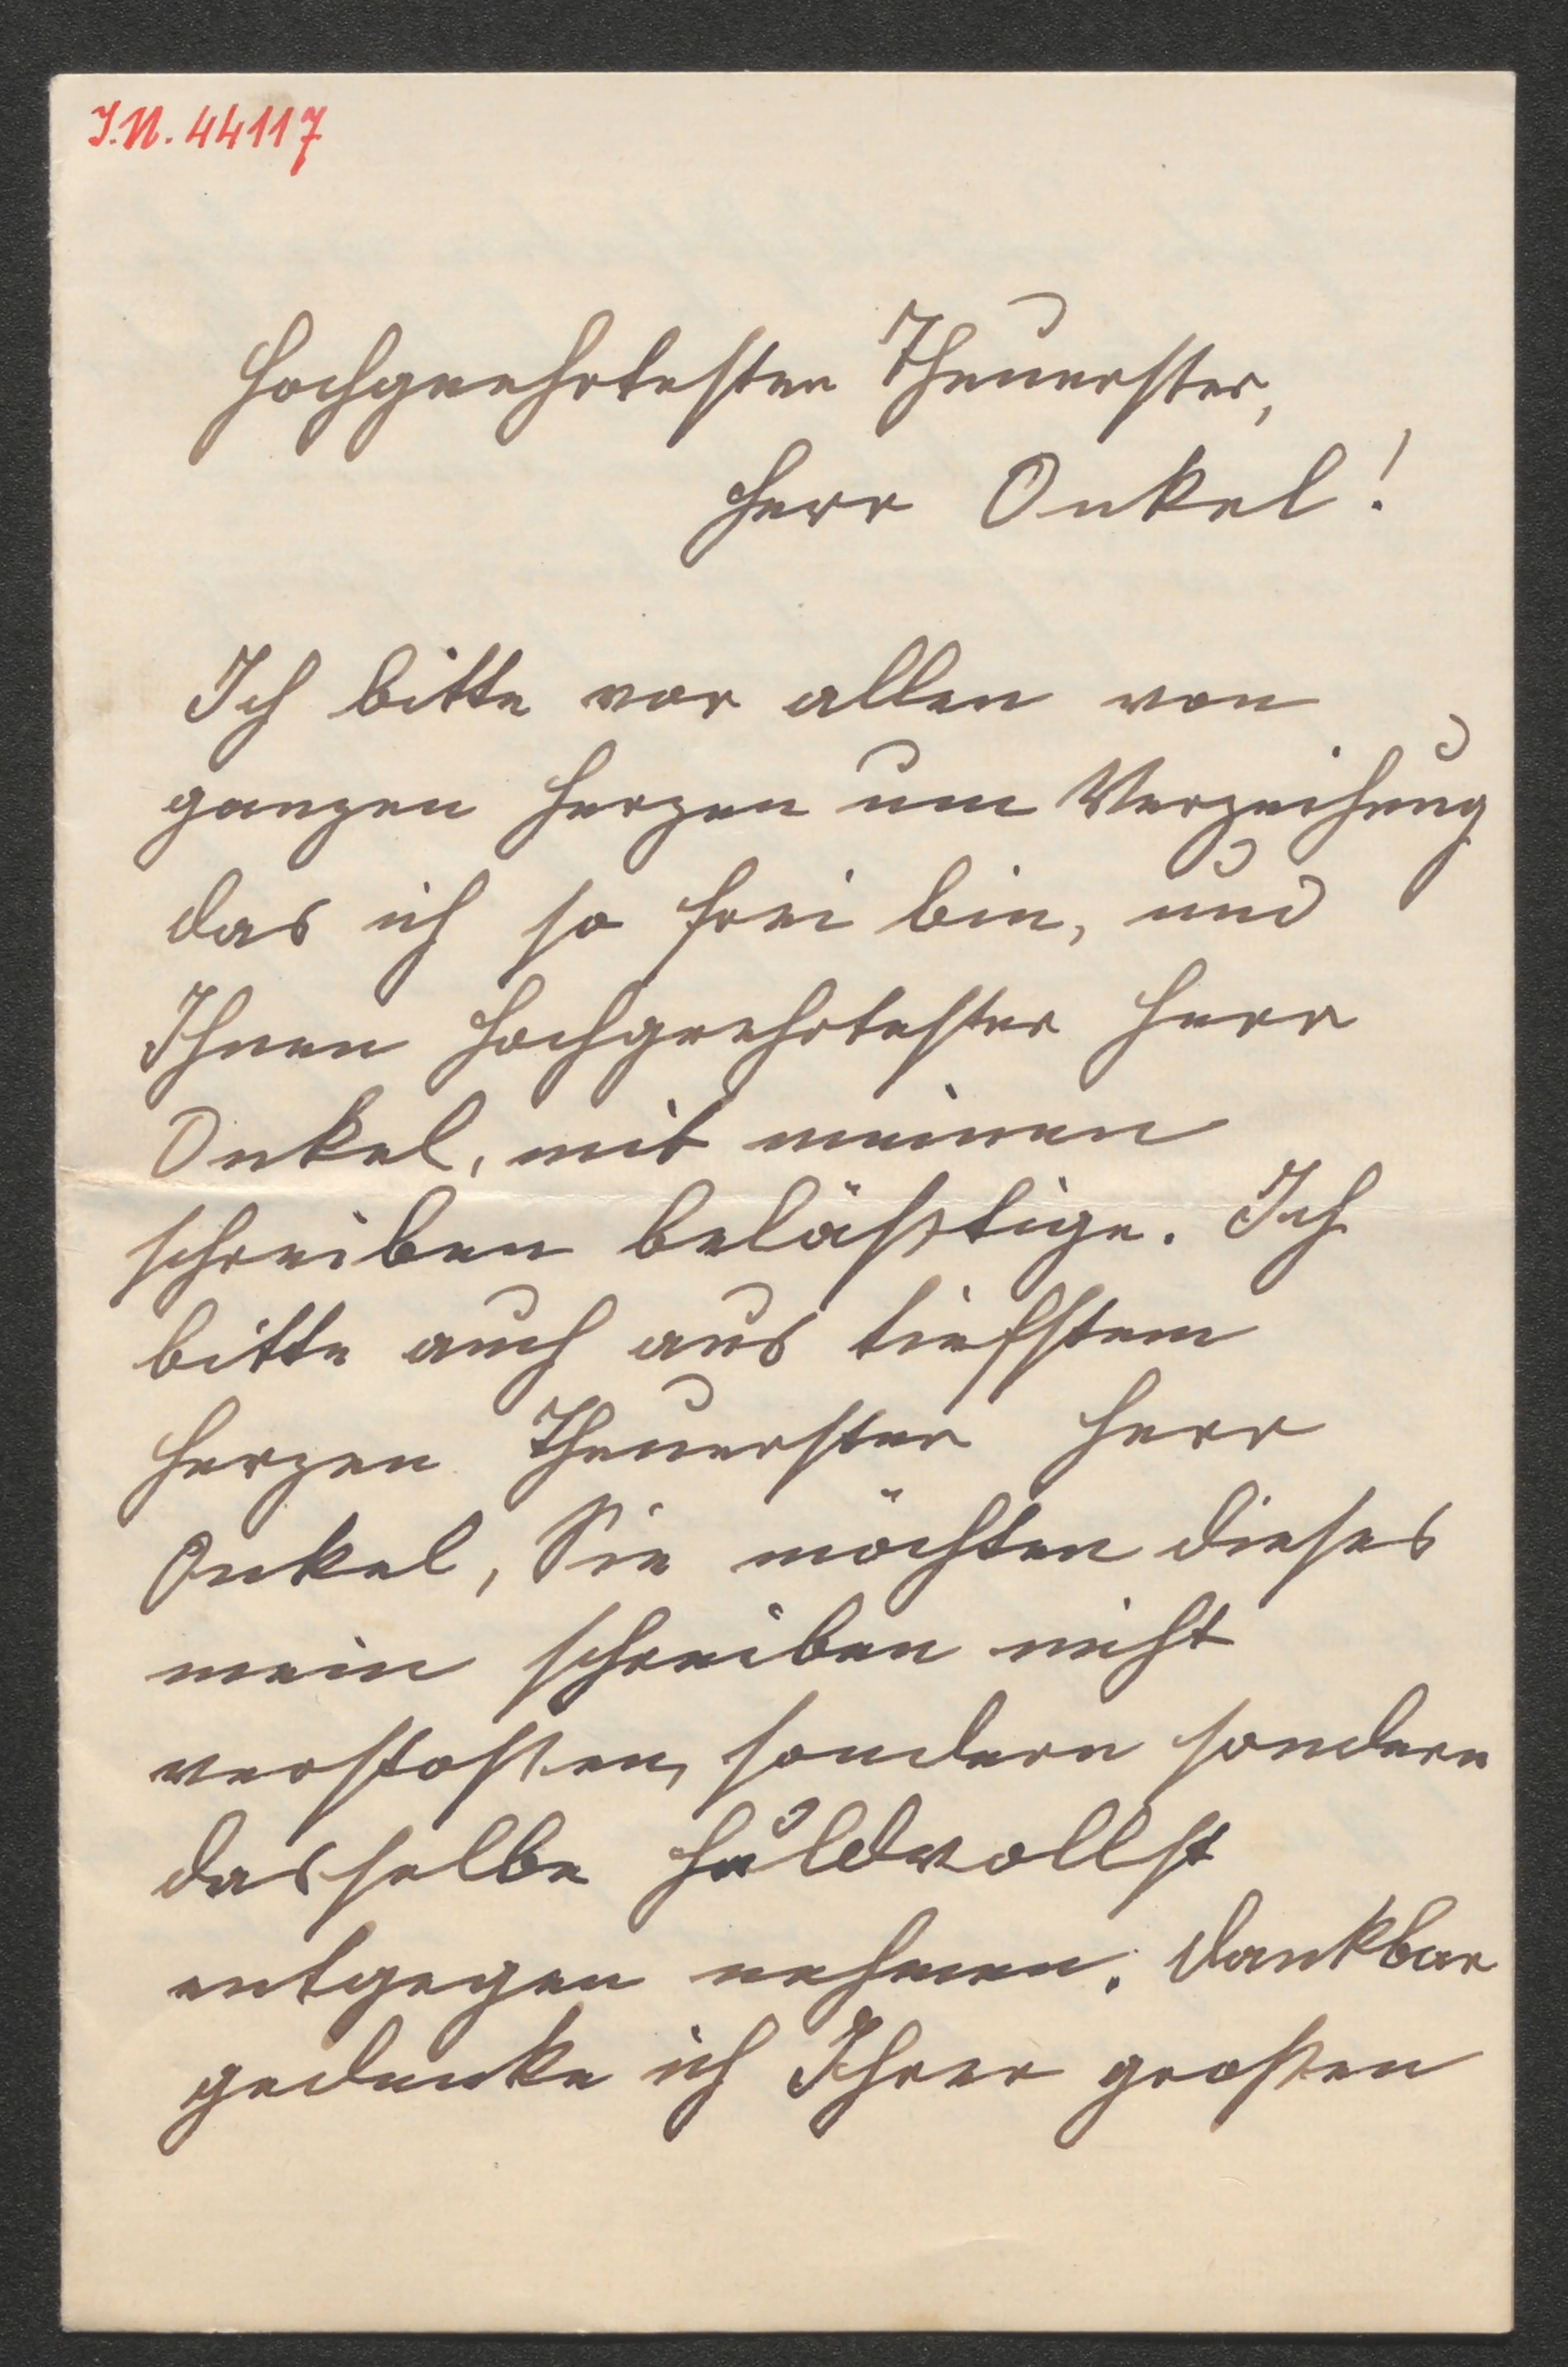 I.N. 44117
Hochgeehrtester Theuerster,
Herr Onkel!
Ich bitte vor allen von
ganzen Herzen um Verzeihung
das ich so frei bin, und
Ihnen Hochgeehrtester Herr
Onkel, mit meinen
schreiben beläßtige. Ich
bitte auch aus tiefstem
Herzen Theuerster Herr
Onkel, Sie möchten dieses
mein schreiben nicht
verstoßen, sondern sondern
dasselbe huldvollst
entgegen nehmen. Dankbar
gedenke ich Ihrer großen